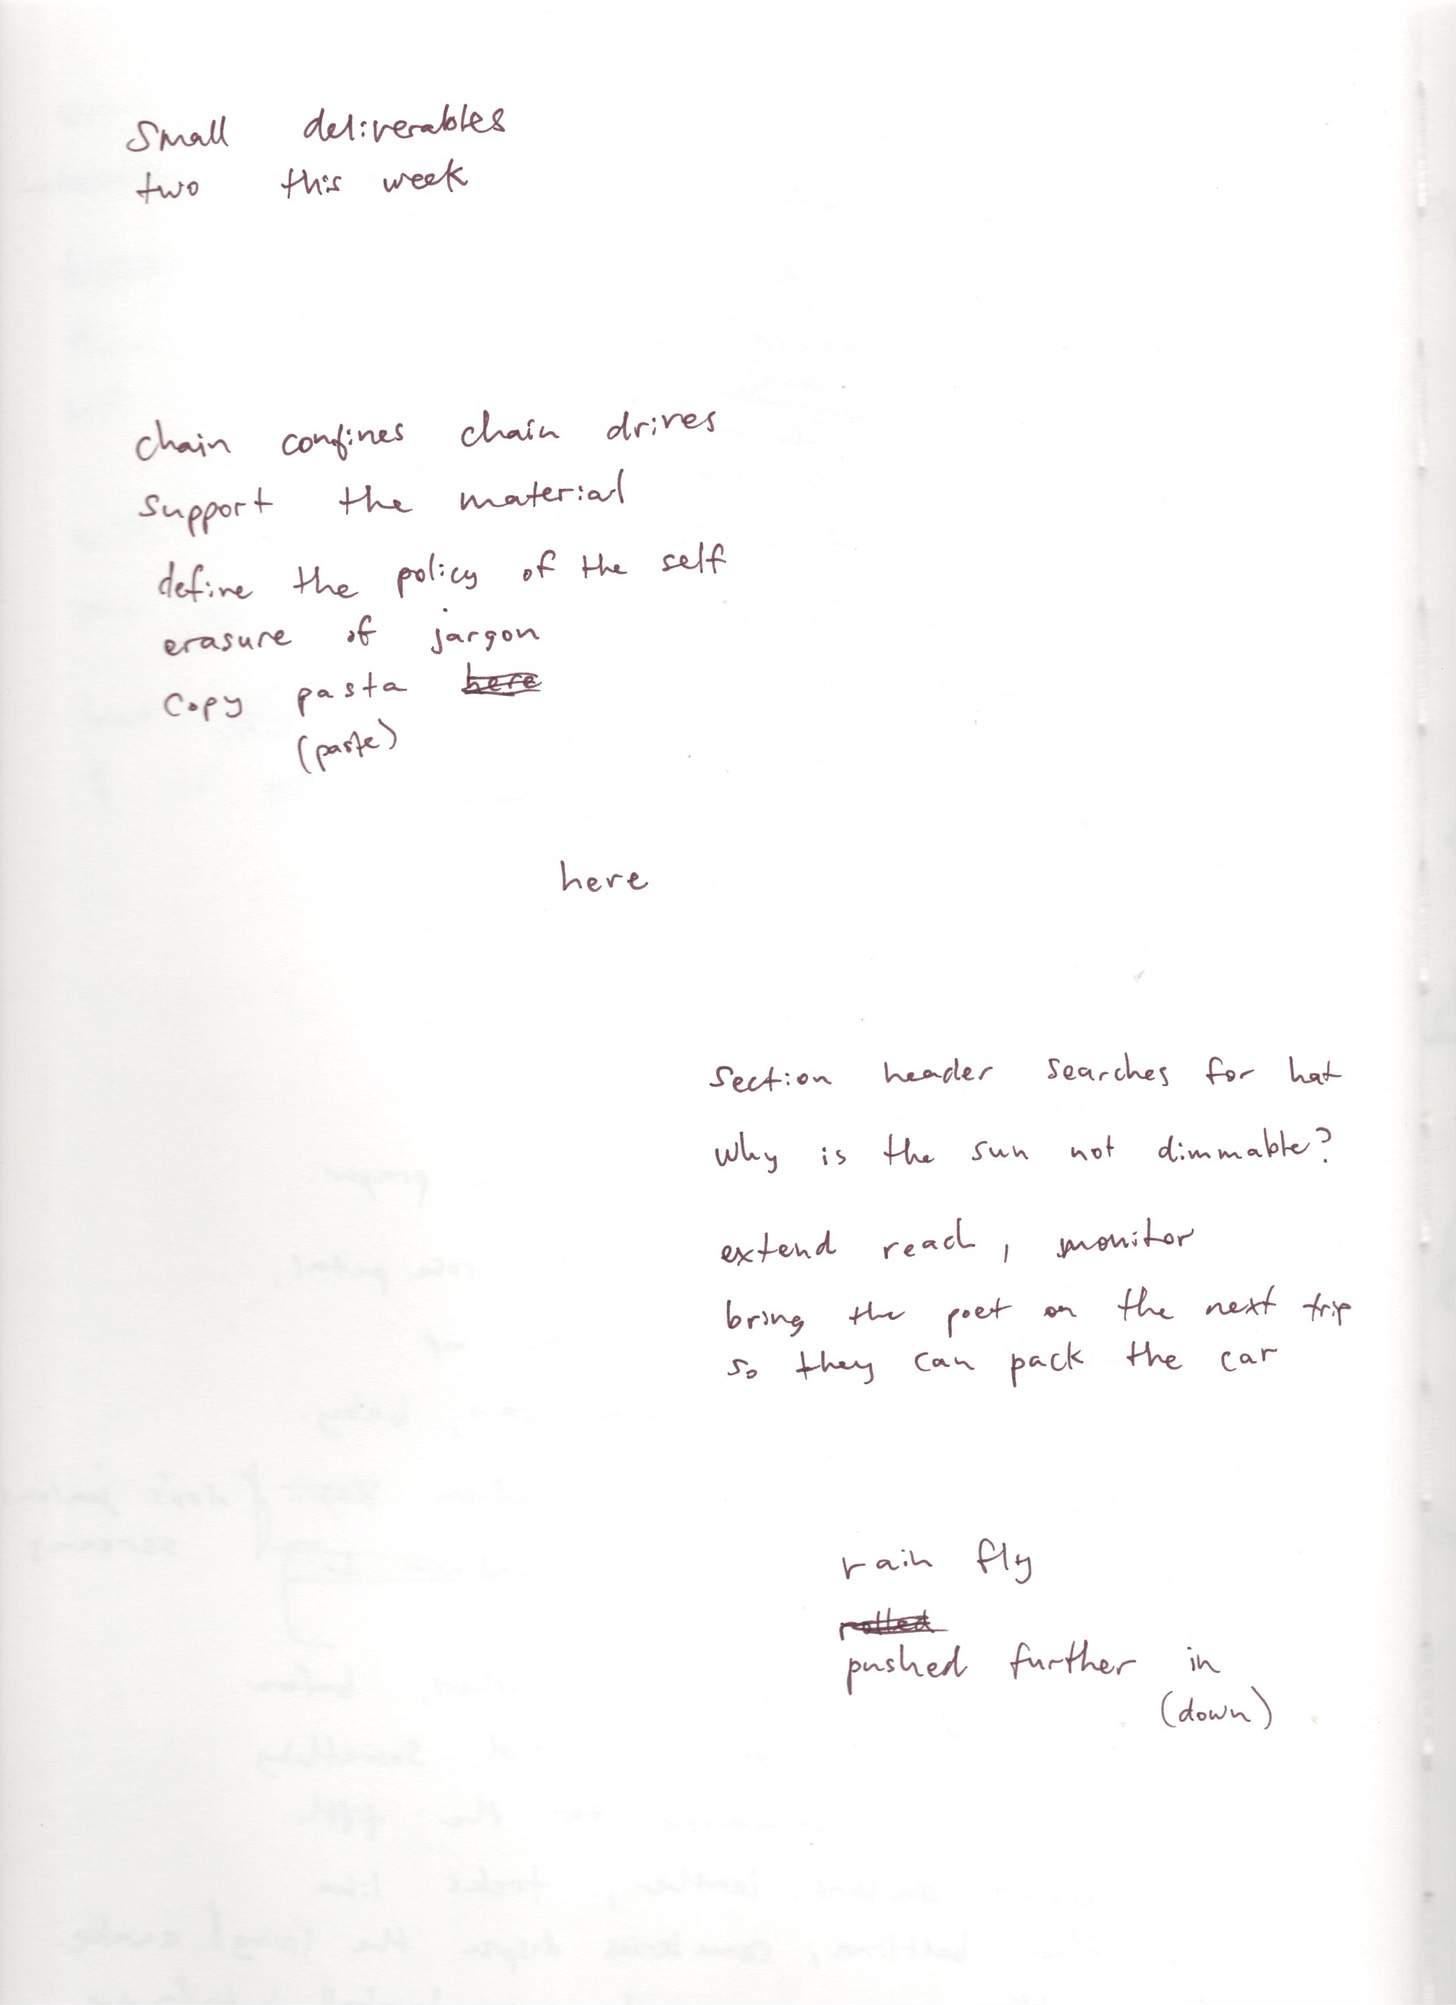 Small deliverables
two this week
chain confines chain drives
support the material
define the policy of the self
erasure of jargon
copy pasta here
(paste)
here
section header searches for hat
why is the sun not dimmable?
extend reach, monitor
bring the poet on the next trip
so they can pack the car
rain fly
rolled
pushed further in
(down)